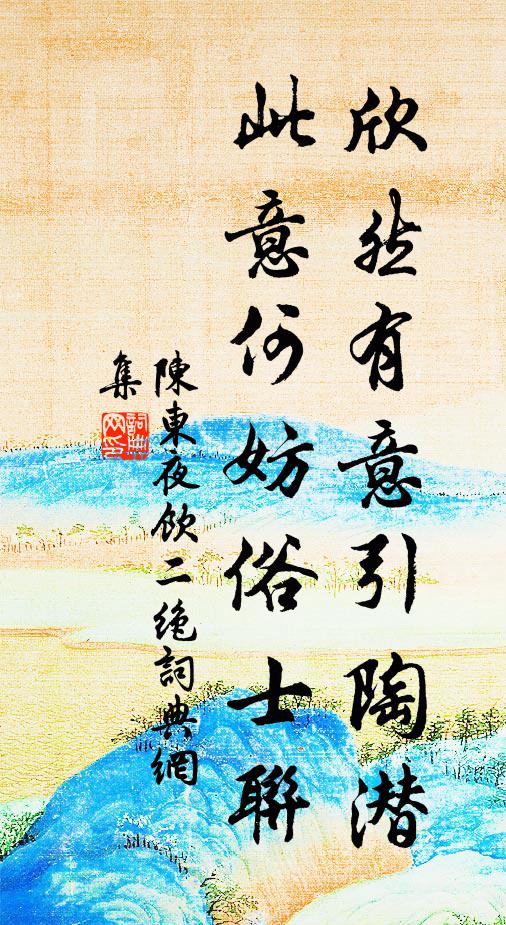 欣然有意引陶潜
此意何妨俗士聯
陳東夜飲二絶詞典網
集
詞典網印